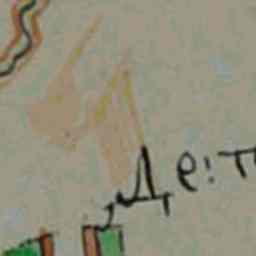 Де:т